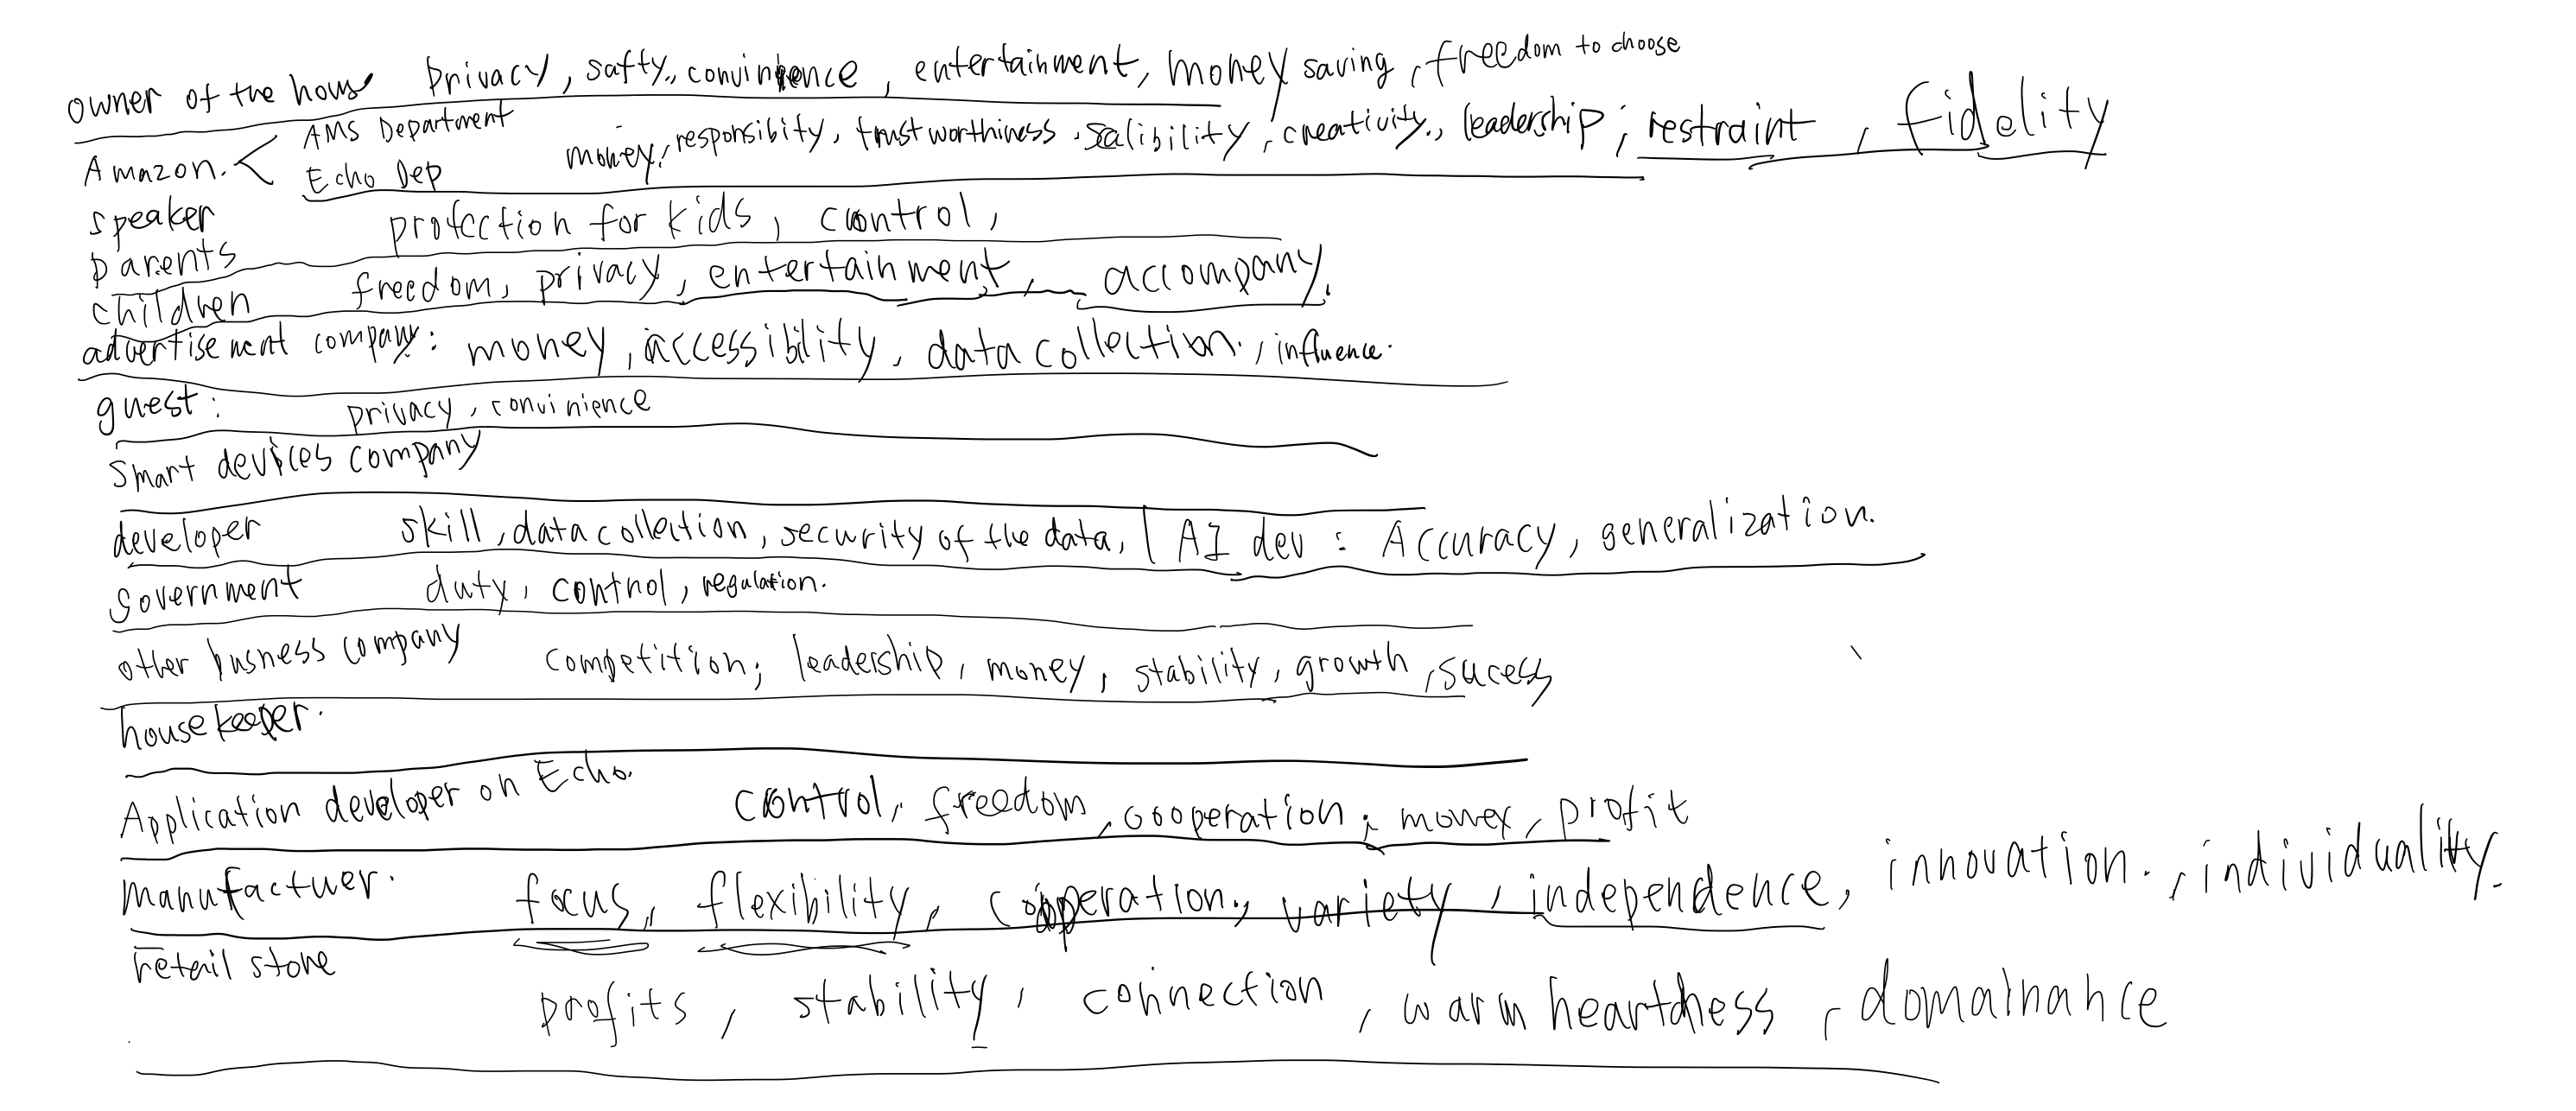 owner of the hous privacy, safty, convinience, entertainment, money saving, freedom to choose
Amazon. < AMS Department
Echo Dep money, responsibity, trustworthiness, salibility, creativity, leadership, restraint, fidelity
speaker
parents protection for kids, control,
children freedom, privacy, entertainment, accompany.
advertisement company: money, accessibility, data collection, influence.
guest: privacy, convinience
Smart devices company
developer skill, data collection, security of the data, | AI dev: Accuracy, generalization.
government duty, control, regulation.
other business company competition, leadership, money, stability, growth, sucess
housekeeper.
Application developer on Echo. control, freedom, cooperation, money, profit
manufactuer. focus, flexibility, cooperation, variety, independence, innovation, individuality.
retail store profits, stability, connection, warmheartdness, domainance